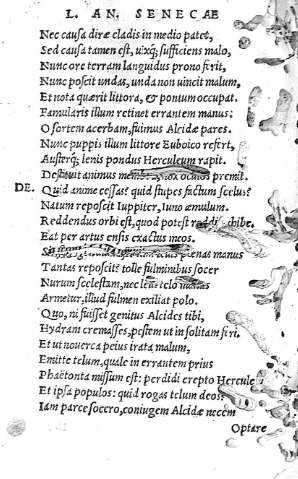 L. AN. SENECAE
Nec causa diræ cladis in medio patet,
Sed causa tamen est, uixq; sufficiens malo,
Nunc ore terram languidus prono ferit,
Nunc poscit undas, unda non uincit malum,
Et nota quærit littora, & pontum occupat.
Famularis illum retinet errantem manus:
O sortem acerbam, fuimus Alcidæ pares.
Nunc puppis illum littore Euboico refert,
Austerq; lenis pondus Herculeum rapit.
Destituit animus oculos premit.
DE. Quid anime cessas? quid stupes factum scelus?
Natum reposcit Iuppiter, Iuno æmulum.
Reddendus orbi est, quod potest
Eat per artus ensis exactus meos.
pœnas manus
Tantas reposcit? tolle fulminibus socer
Nurum scelestam, nec leui telo manus
Armetur, illud fulmen exiliat polo.
Quo, ni fuisset genitus Alcides tibi,
Hydram cremasses, pestem ut in solitam feri,
Et ut nouerca peius irata malum,
Emitte telum, quale in errantem prius
Phaëtonta missum est: perdidi erepto Hercule
Et ipsa populos: quid rogas telum deos?
Iam parce socero, coniugem Alcidæ necem
Optare